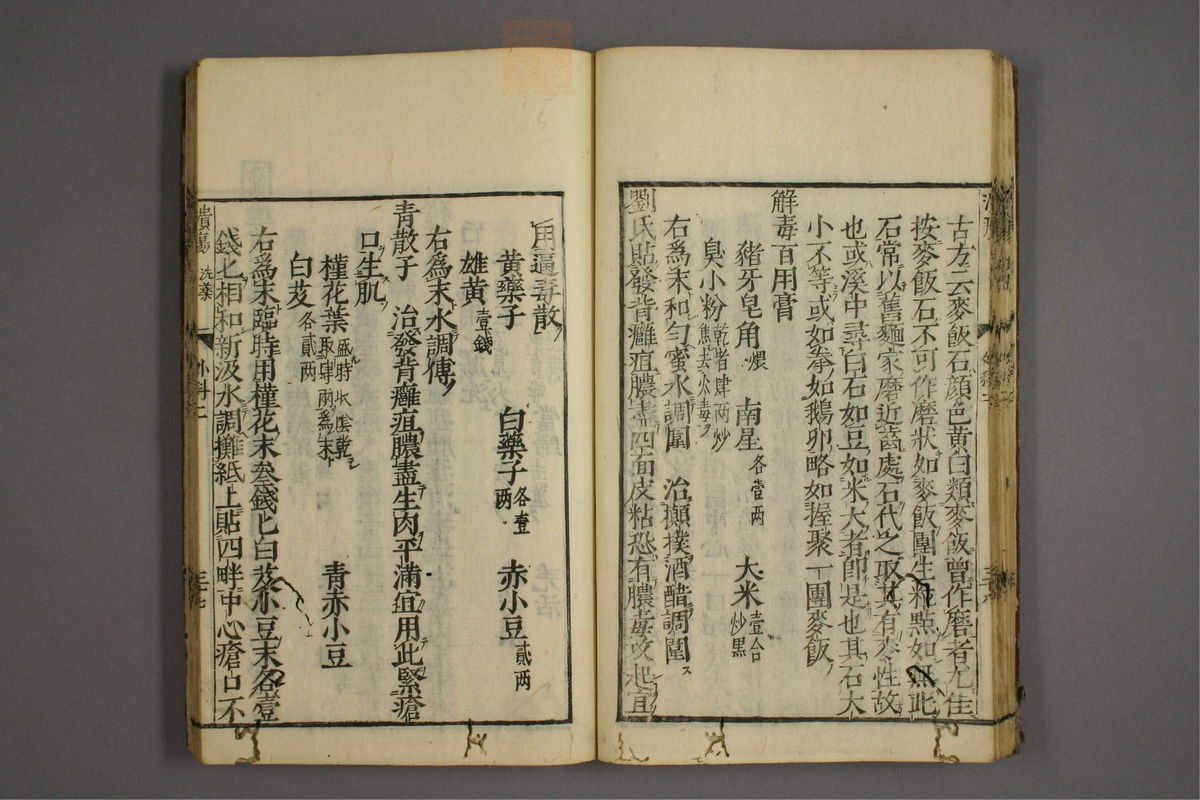 古方云麥飯石顔色黄白類麥飯曾作磨者尤佳
按麥飯石不可作磨狀如麥飯團生粒點如無此
石常以舊麵家磨近齒處石代之取其有麥性故
也或溪中尋白石如豆如米大者即是也其石大
小不等或如拳如鵝卵略如握聚一團麥飯
解毒百用膏
猪牙皂角煨 南星各壹两 大米壹合炒黒
臭小粉乾者肆两炒焦去火毒
右爲末和匀蜜水調圍 治攧撲酒醋調圍
劉氏貼發背癰疽膿盡四面皮粘恐有膿毒攻起宜
用逼毒散
黄藥子 白藥子各壹两 赤小豆貳两
雄黄壹錢
右爲末水調傅
青散子 治發背癰疽膿盡生肉平滿宜用此緊瘡
口生肌
槿花葉盛時收陰乾取肆两爲末 青赤小豆
白芨各貳两
右爲末臨時用槿花末叁錢匕白芨小豆末各壹
錢匕相和新汲水調攤紙上貼四畔中心瘡口不
貴瘍 洗藥 外科二